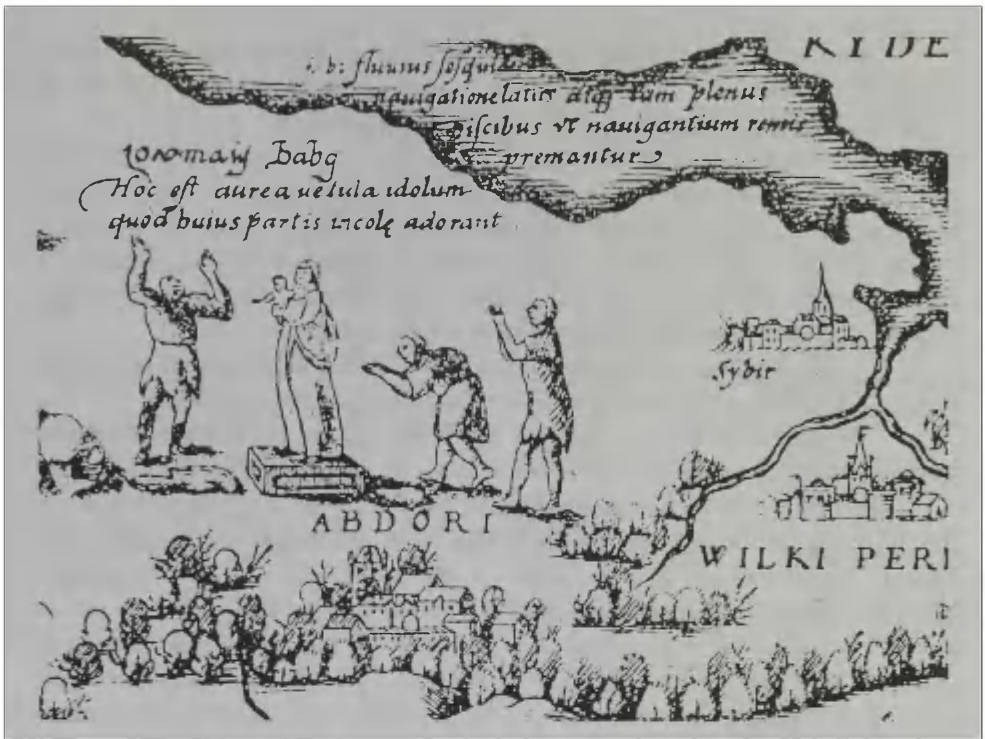 KIDE
fluuius sesqui
nauigatione latus atqʒ tam plenus
piscibus vt nauigantium remis
premantur
Babg
Hoc est aurea uetula idolum
quod huius partis incolę adorant
Sybir
ABDORI
WILKI PERI